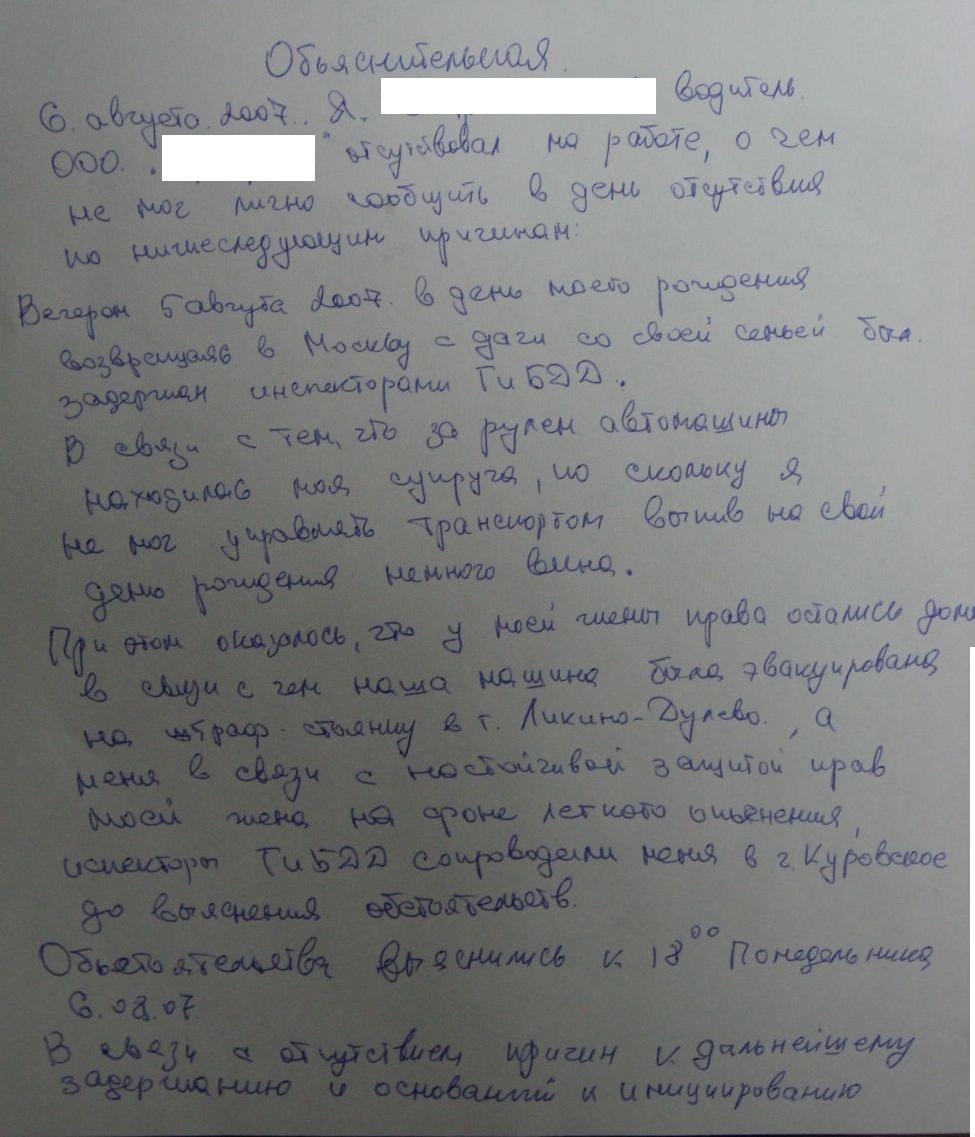 Обьяснительная.
6. августа. 2007.. Я. водитель.
ООО. " отсутствовал на работе, о чем
не мог лично сообщить в день отсутствия
по нижеследующим причинам:
Вечером 5 августа 2007. в день моего рождения
возвращаяь в Москву с дачи со своей семьей был.
задержан инспекторами ГиБДД.
В связи с тем, что за рулем автомашины
находилаь моя супруга, по скольку я
не мог управлять транспортом выпив на свой
день рождения немного вина.
При этом оказалось, что у моей жены права остались дома
в связи с чем наша машина была эвакуирована
на штраф. стоянку в г. Ликино-Дулево., а
меня в связи с настойчивой защитой прав
моей жены на фоне легкого опьянения,
испекторы ГиБДД сопроводили меня в г. Куровское
до выяснения обстоятельств.
Обьстоятельства выяснились к 18⁰⁰ Понедельника
6.08.07.
В связи с отсутствием причин к дальнейшему
задержанию и оснований к инициированию